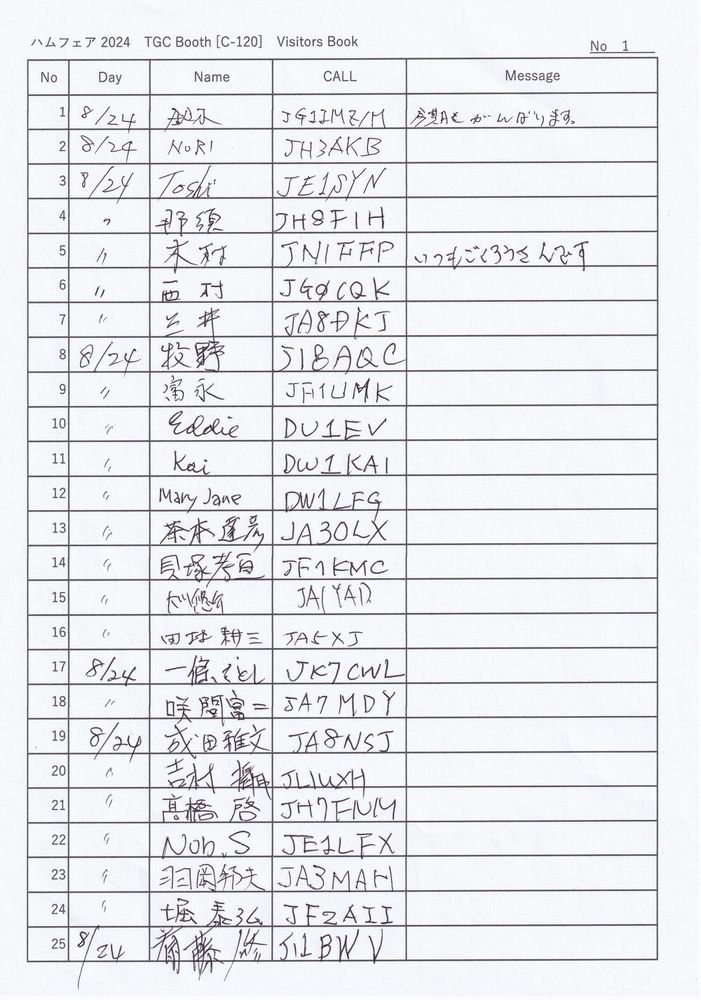 ハムフェア 2024 TGC Booth [C-120] Visitors Book
No 1
No Day Name CALL Message
1 8/24 JG1IMZ/M がんばります。
2 8/24 NORI JH3AKB
3 8/24 Toshi JE1SYN
4 〃 那須 JH8FIH
5 〃 木村 JN1FFP いつもごくろうさんです
6 〃 西村 JG0CQK
7 〃 三井 JA8DKJ
8 8/24 牧野 JI8AQC
9 〃 富永 JF1UMK
10 〃 Eddie DU1EV
11 〃 Kai DW1KAI
12 〃 Mary Jane DW1LFG
13 〃 茶本 達彦 JA3OLX
14 〃 貝塚 JF1KMC
15 〃 JA1YAD
16 〃 田村 耕三 JA5XJ
17 8/24 一條 さとし JK7CWL
18 〃 咲間富二 JA7MDY
19 8/24 成田雅文 JA8NSJ
20 〃 吉村 JL1UXH
21 〃 高橋 啓 JH7FNM
22 〃 Nob.S JE1LFX
23 〃 羽岡邦夫 JA3MAH
24 〃 堀 泰弘 JF2AII
25 8/24 齋藤 修 JI1BWV